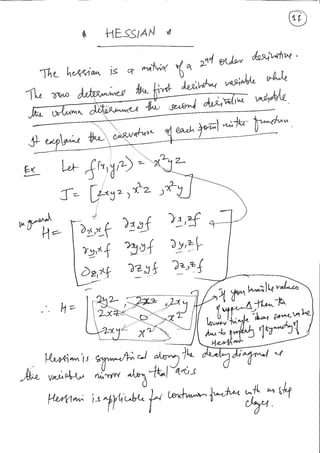 17
* HESSIAN *
The hessian is a matrix of a 2nd order derivative.
The rows determines the first derivative variable while
the column determines the second derivative variable.
It explains the curvature of each point in the function
Ex Let f(x,y,z) = x²yz
J = [2xyz, x²z, x²y]
in general
H = [∂x,xf ∂x,yf ∂x,zf
∂y,xf ∂y,yf ∂y,zf
∂z,xf ∂z,yf ∂z,zf]
∴ H = [2yz, 2xz, 2xy
2xz 0 x²
2xy x² 0]
if you know the values
of upper Δ then the
lower triangle has same value
due to property of symmetry of
Hessian
Hessian is symmetrical along the diagonal
the variable mirror along that axis
Hessian is applicable for continuous function with no step